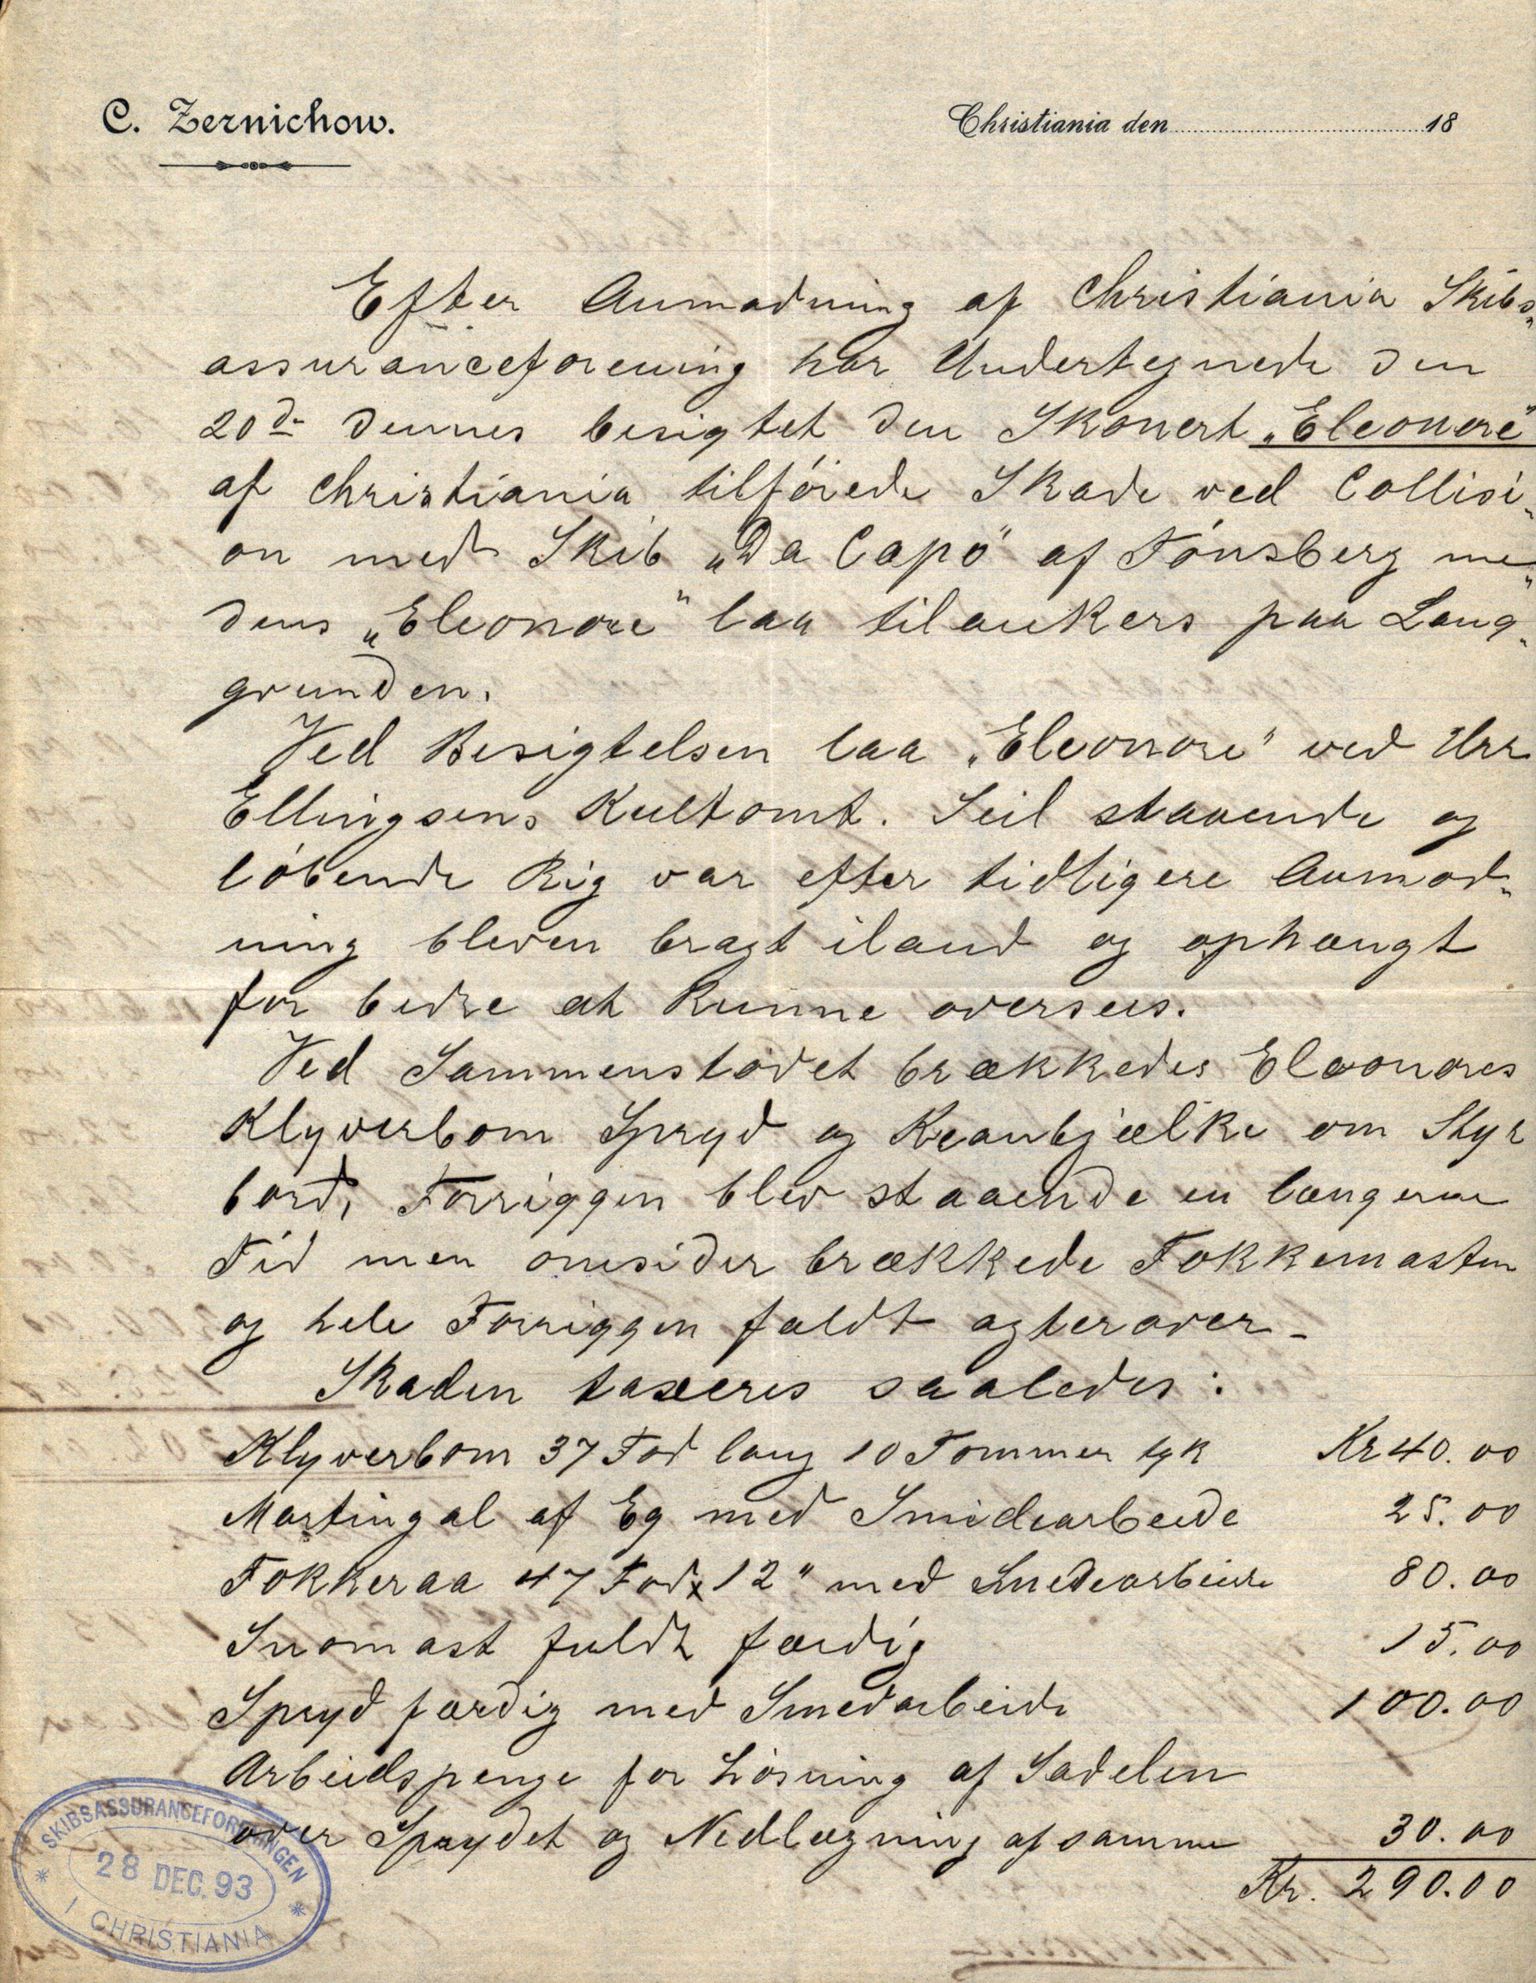 C. Zernichow.
Christiania den 18
Efter Anmodning af Christiania Skibs„
assuranceforening har Undertegnede den
20d– dennes besigtet den Skonert „Eleonore“
af Christiania tilføiede Skade ved Collisi„
on med Skib „Da Capo“ af Tønsberg me„
dens „Eleonore“ laa tilankers paa Lang„
grunden.
Ved Besigtelsen laa „Eleonore“ ved Hrr
Ellingsens Kultomt. Seil staaende og
løbende Rig var efter tidligere Anmod„
ning bleven bragt iland og ophængt
for bedre at kunne oversees.
Ved Sammenstødet brækkedes Eleonores
Klyverbom Spryd og Kranbjælke om Styr
bord, Forriggen blev staaende en længere
Tid men omsider brækkede Fokkemasten
og hele Forriggen faldt agterover_
Skaden taxeres saaledes:
Klyverbom 37 Fod lang 10 Tommer tyk Kr 40.00
Martingal af Eg med Smidearbeide 25.00
Fokkeraa 47 Fod x 12" med Smedearbeide 80.00
Snomast fuldt færdig 15.00
Spryd færdig med Smedarbeide 100.00
Arbeidspenge for Løsning af Sadelen
over Sprydet og Nedlægning af samme 30.00
Kr. 290.00
SKIBSASSURANCEFORENINGEN
28 DEC. 93
* I CHRISTIANIA *